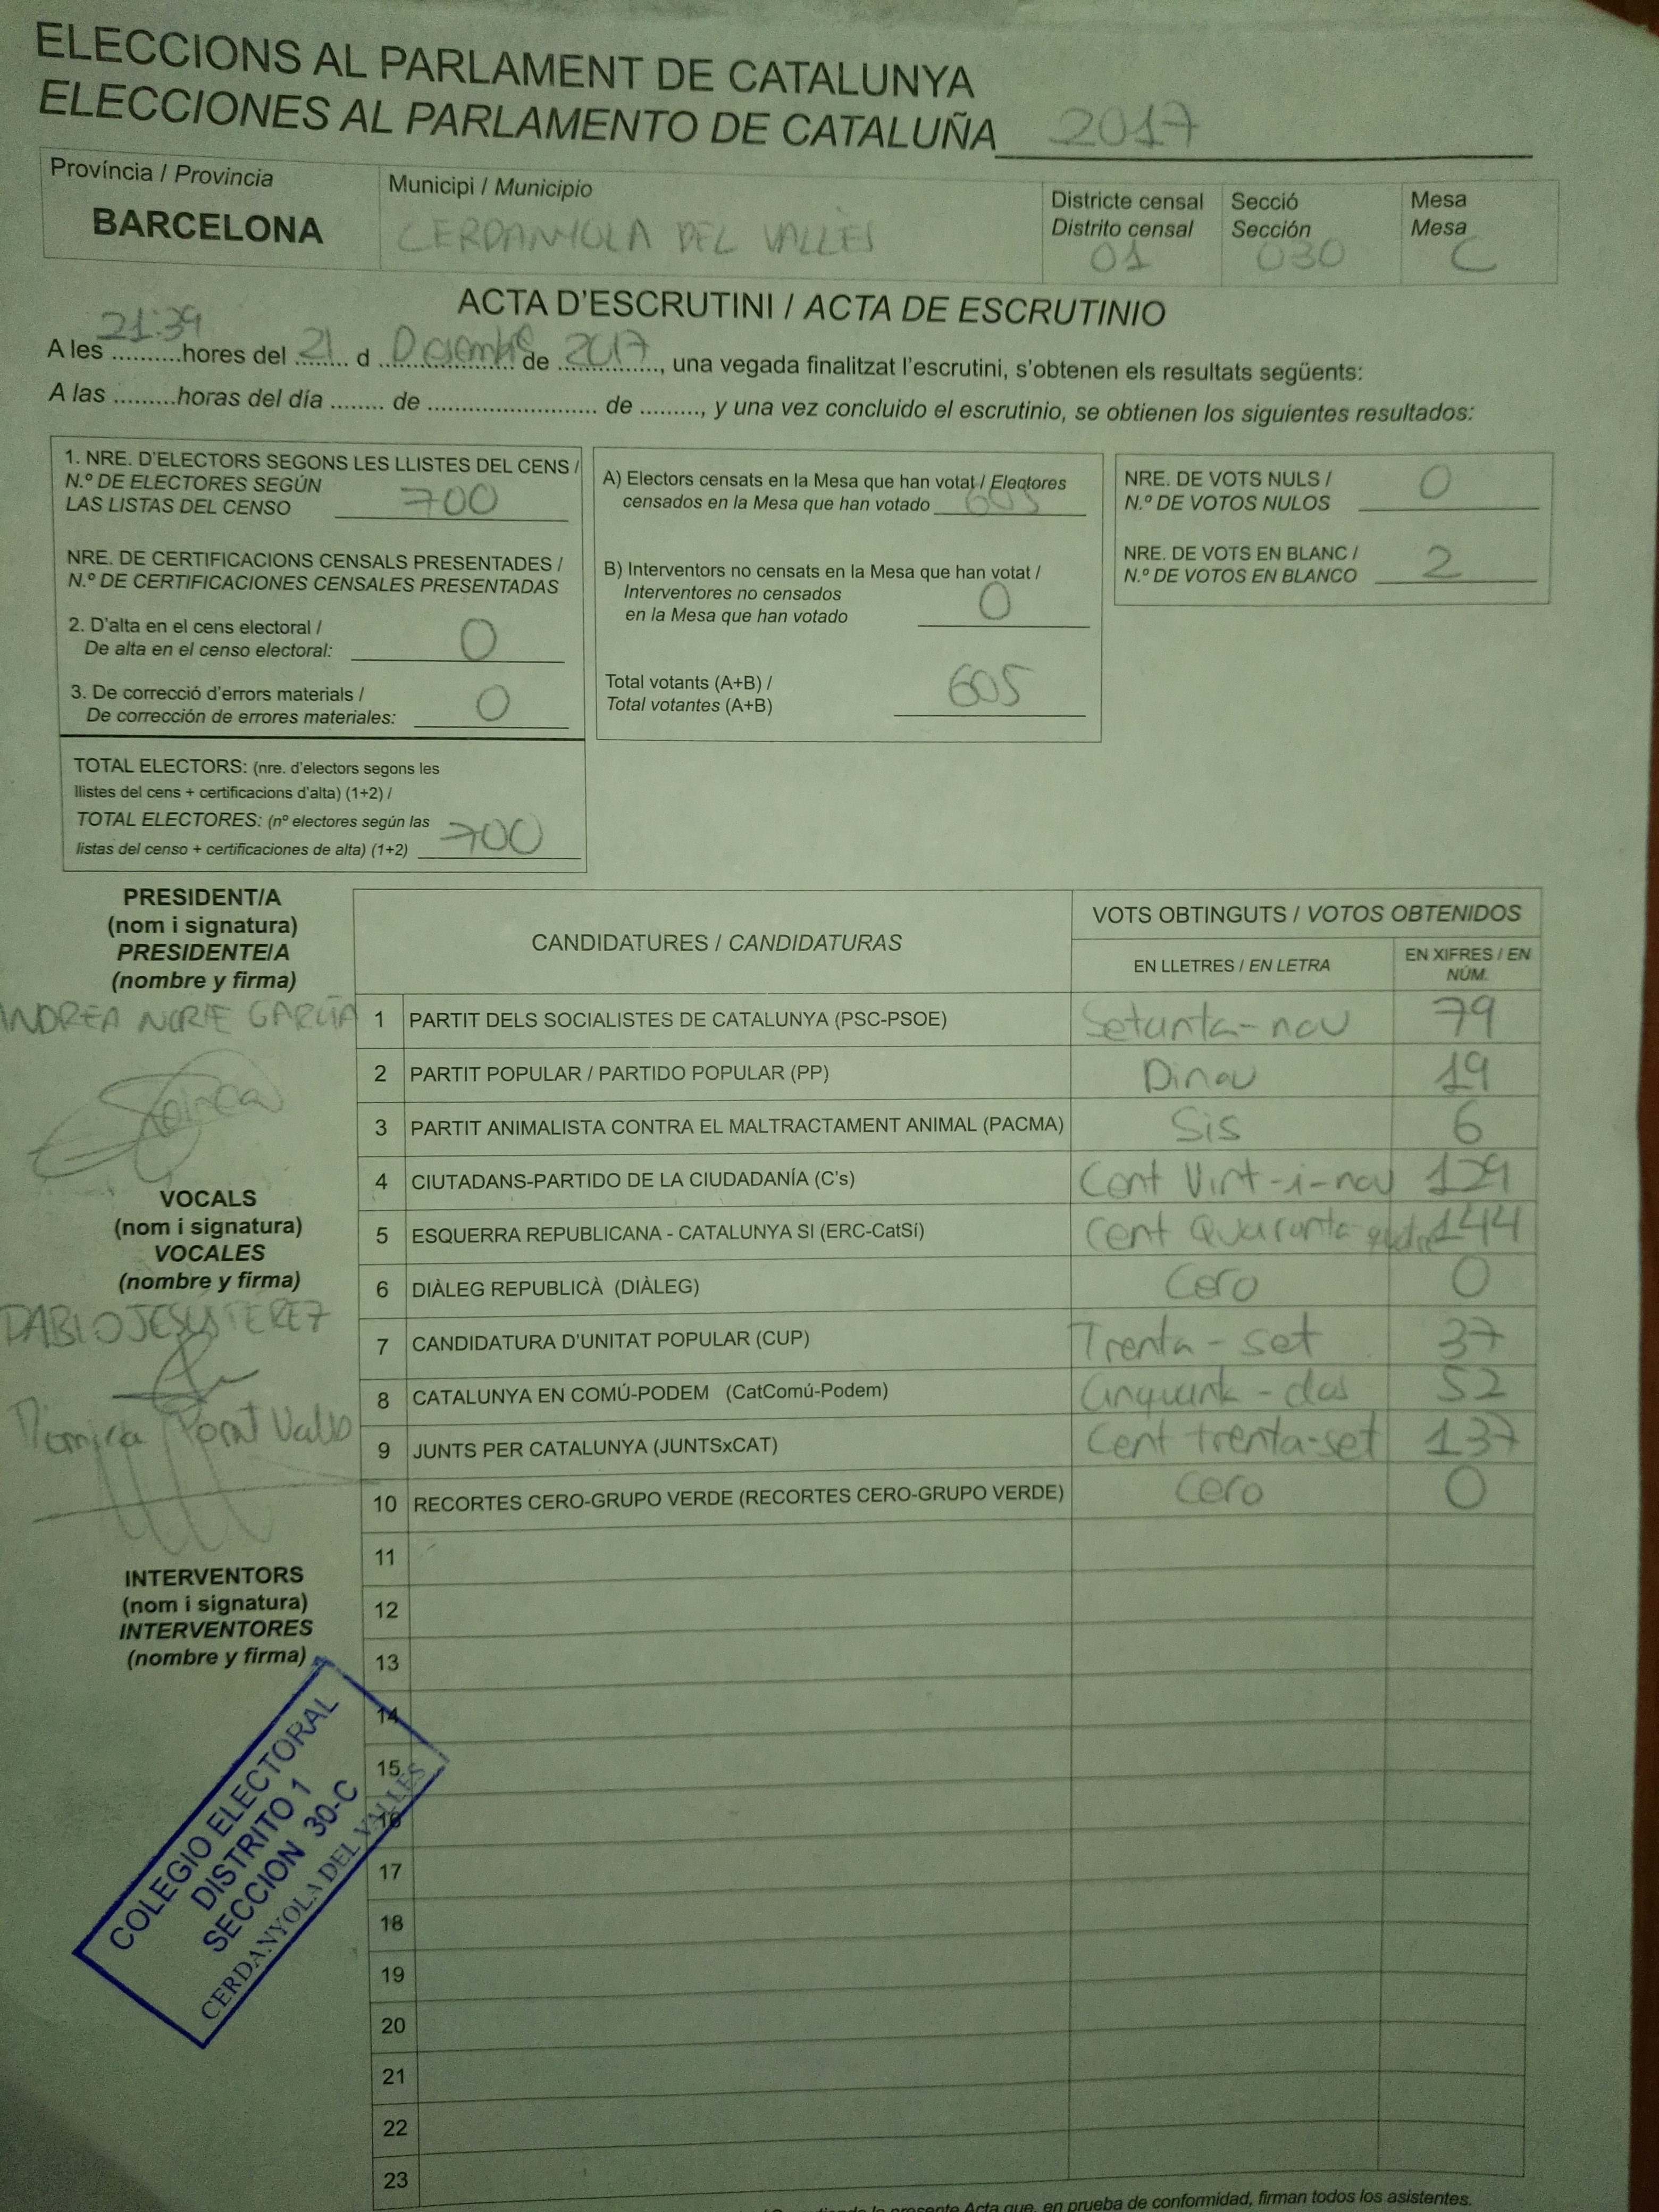 ELECCIONS AL PARLAMENT DE CATALUNYA
ELECCIONES AL PARLAMENTO DE CATALUÑA 2017
Província / Provincia
BARCELONA
Municipi / Municipio
CERDANYOLA DEL VALLÈS
Districte censal
Distrito censal
01
Secció
Sección
030
Mesa
Mesa
C
ACTA D'ESCRUTINI / ACTA DE ESCRUTINIO
A les 21:39 hores del 21 d Desembre de 2017, una vegada finalitzat l'escrutini, s'obtenen els resultats següents:
A las .........horas del día ........ de ........................ de ........., y una vez concluido el escrutinio, se obtienen los siguientes resultados:
1. NRE. D'ELECTORS SEGONS LES LLISTES DEL CENS /
N.º DE ELECTORES SEGÚN
LAS LISTAS DEL CENSO 700
NRE. DE CERTIFICACIONS CENSALS PRESENTADES /
N.º DE CERTIFICACIONES CENSALES PRESENTADAS
2. D'alta en el cens electoral /
De alta en el censo electoral: 0
3. De correcció d'errors materials /
De corrección de errores materiales: 0
TOTAL ELECTORS: (nre. d'electors segons les
llistes del cens + certificacions d'alta) (1+2) /
TOTAL ELECTORES: (nº electores según las
listas del censo + certificaciones de alta) (1+2) 700
A) Electors censats en la Mesa que han votat / Electores
censados en la Mesa que han votado 605
B) Interventors no censats en la Mesa que han votat /
Interventores no censados
en la Mesa que han votado 0
Total votants (A+B) /
Total votantes (A+B) 605
NRE. DE VOTS NULS /
N.º DE VOTOS NULOS 0
NRE. DE VOTS EN BLANC /
N.º DE VOTOS EN BLANCO 2
PRESIDENT/A
(nom i signatura)
PRESIDENTE/A
(nombre y firma)
ANDREA NORIE GARCÍA
VOCALS
(nom i signatura)
VOCALES
(nombre y firma)
PABLO JESÚS PEREZ
Pont
INTERVENTORS
(nom i signatura)
INTERVENTORES
(nombre y firma)
CANDIDATURES / CANDIDATURAS
VOTS OBTINGUTS / VOTOS OBTENIDOS
EN LLETRES / EN LETRA
EN XIFRES / EN
NÚM.
1 PARTIT DELS SOCIALISTES DE CATALUNYA (PSC-PSOE) Setanta-nou 79
2 PARTIT POPULAR / PARTIDO POPULAR (PP) Dinou 19
3 PARTIT ANIMALISTA CONTRA EL MALTRACTAMENT ANIMAL (PACMA) Sis 6
4 CIUTADANS-PARTIDO DE LA CIUDADANÍA (C's) Cent Vint-i-nou 129
5 ESQUERRA REPUBLICANA - CATALUNYA SI (ERC-CatSí) Cent Quaranta-quatre 144
6 DIÀLEG REPUBLICÀ (DIÀLEG) Cero 0
7 CANDIDATURA D'UNITAT POPULAR (CUP) Trenta-set 37
8 CATALUNYA EN COMÚ-PODEM (CatComú-Podem) Cinquanta-dos 52
9 JUNTS PER CATALUNYA (JUNTSxCAT) Cent trenta-set 137
10 RECORTES CERO-GRUPO VERDE (RECORTES CERO-GRUPO VERDE) Cero 0
11
12
13
14
15
16
17
18
19
20
21
22
23
COLEGIO ELECTORAL
DISTRITO 1
SECCION 30-C
CERDANYOLA DEL VALLES
la presente Acta que, en prueba de conformidad, firman todos los asistentes.